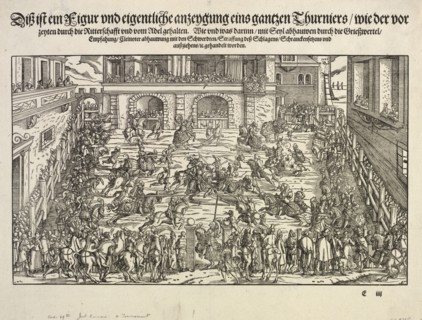 Diß ist ein Figur vnd eigentliche anzeygung eins gantzen Thurniers / wie der vor
zeyten durch die Ritterschafft vnd vom Adel gehalten. Wie vnd was darinn / mit Seyl abhauwen durch die Grießwertel /
Empfahung / Kleinoter abhauwung mit den Schwerdten / Straffung deß Schlagens / Schranckensetzens vnd
auffziehens ꝛc gehandelt worden.
E iiij